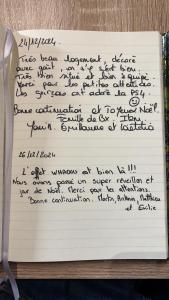 24/12/2024
Très beau logement, décoré
avec goût, on s'y sent bien.
Très bien situé et bien équipé.
Merci pour les petites attentions.
Les garçons ont adoré la PS4
Bonne continuation et Joyeux Noël.
Famille de
Guillaume et Laëtitia
26/12/2024
L'effet WHAOU est bien là !!!
Nous avons passé un super réveillon et
jour de Noël. Merci pour les attentions.
Bonne continuation. Martin, Antonin, Matthieu
et Emilie